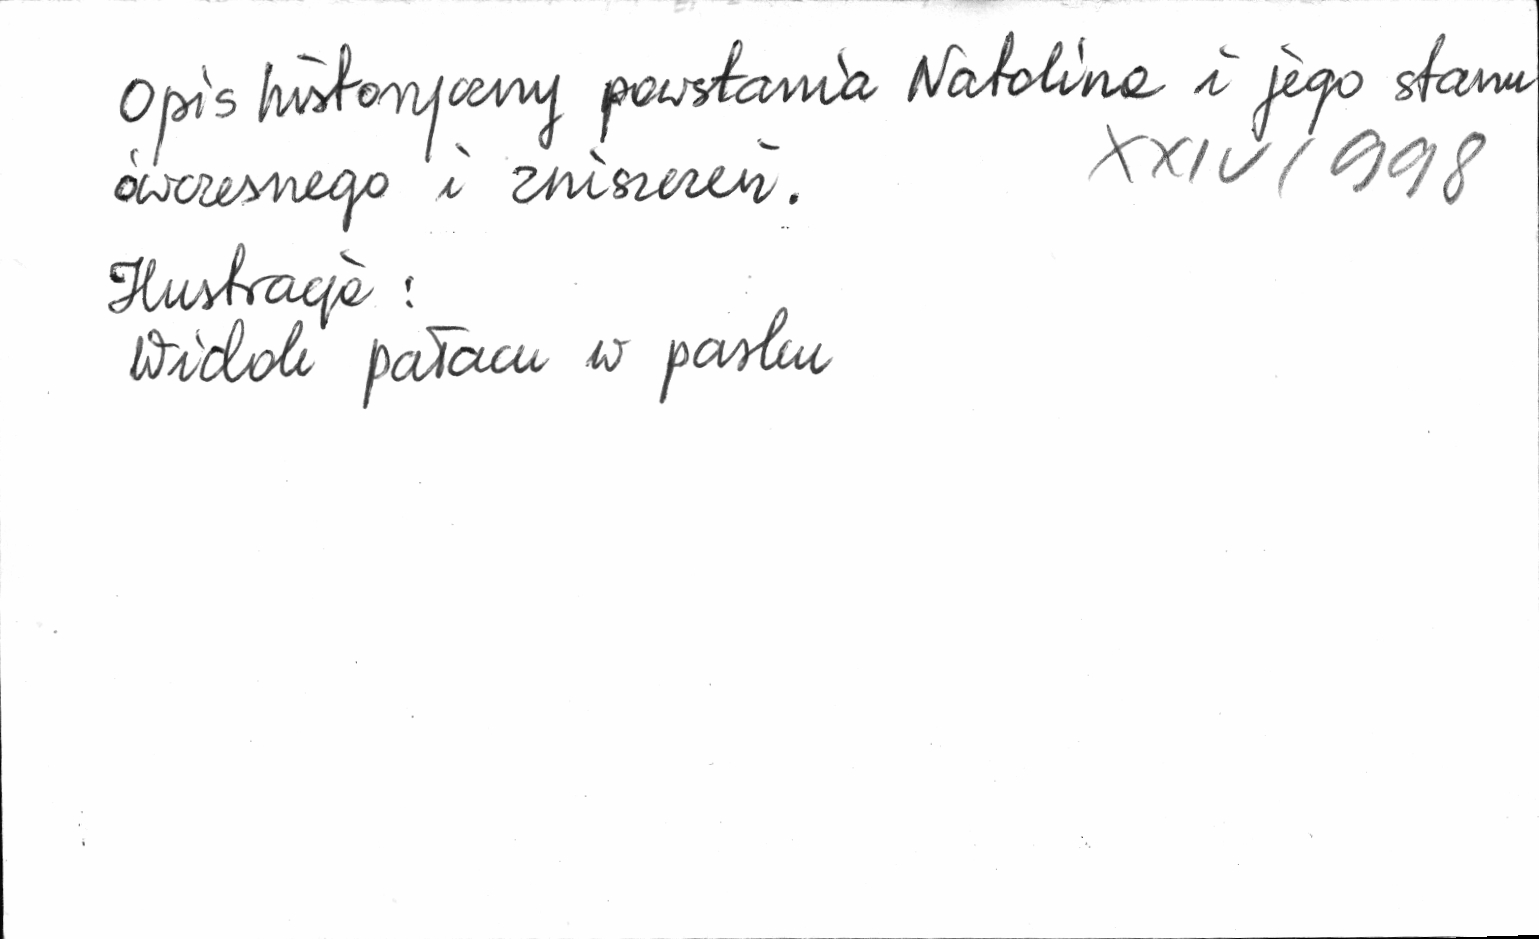 Opis historyczny powstania Natolina i jego stanu
XXIV/998
ówczesnego i zniszczeń.
Ilustracje:
Widok pałacu w parku